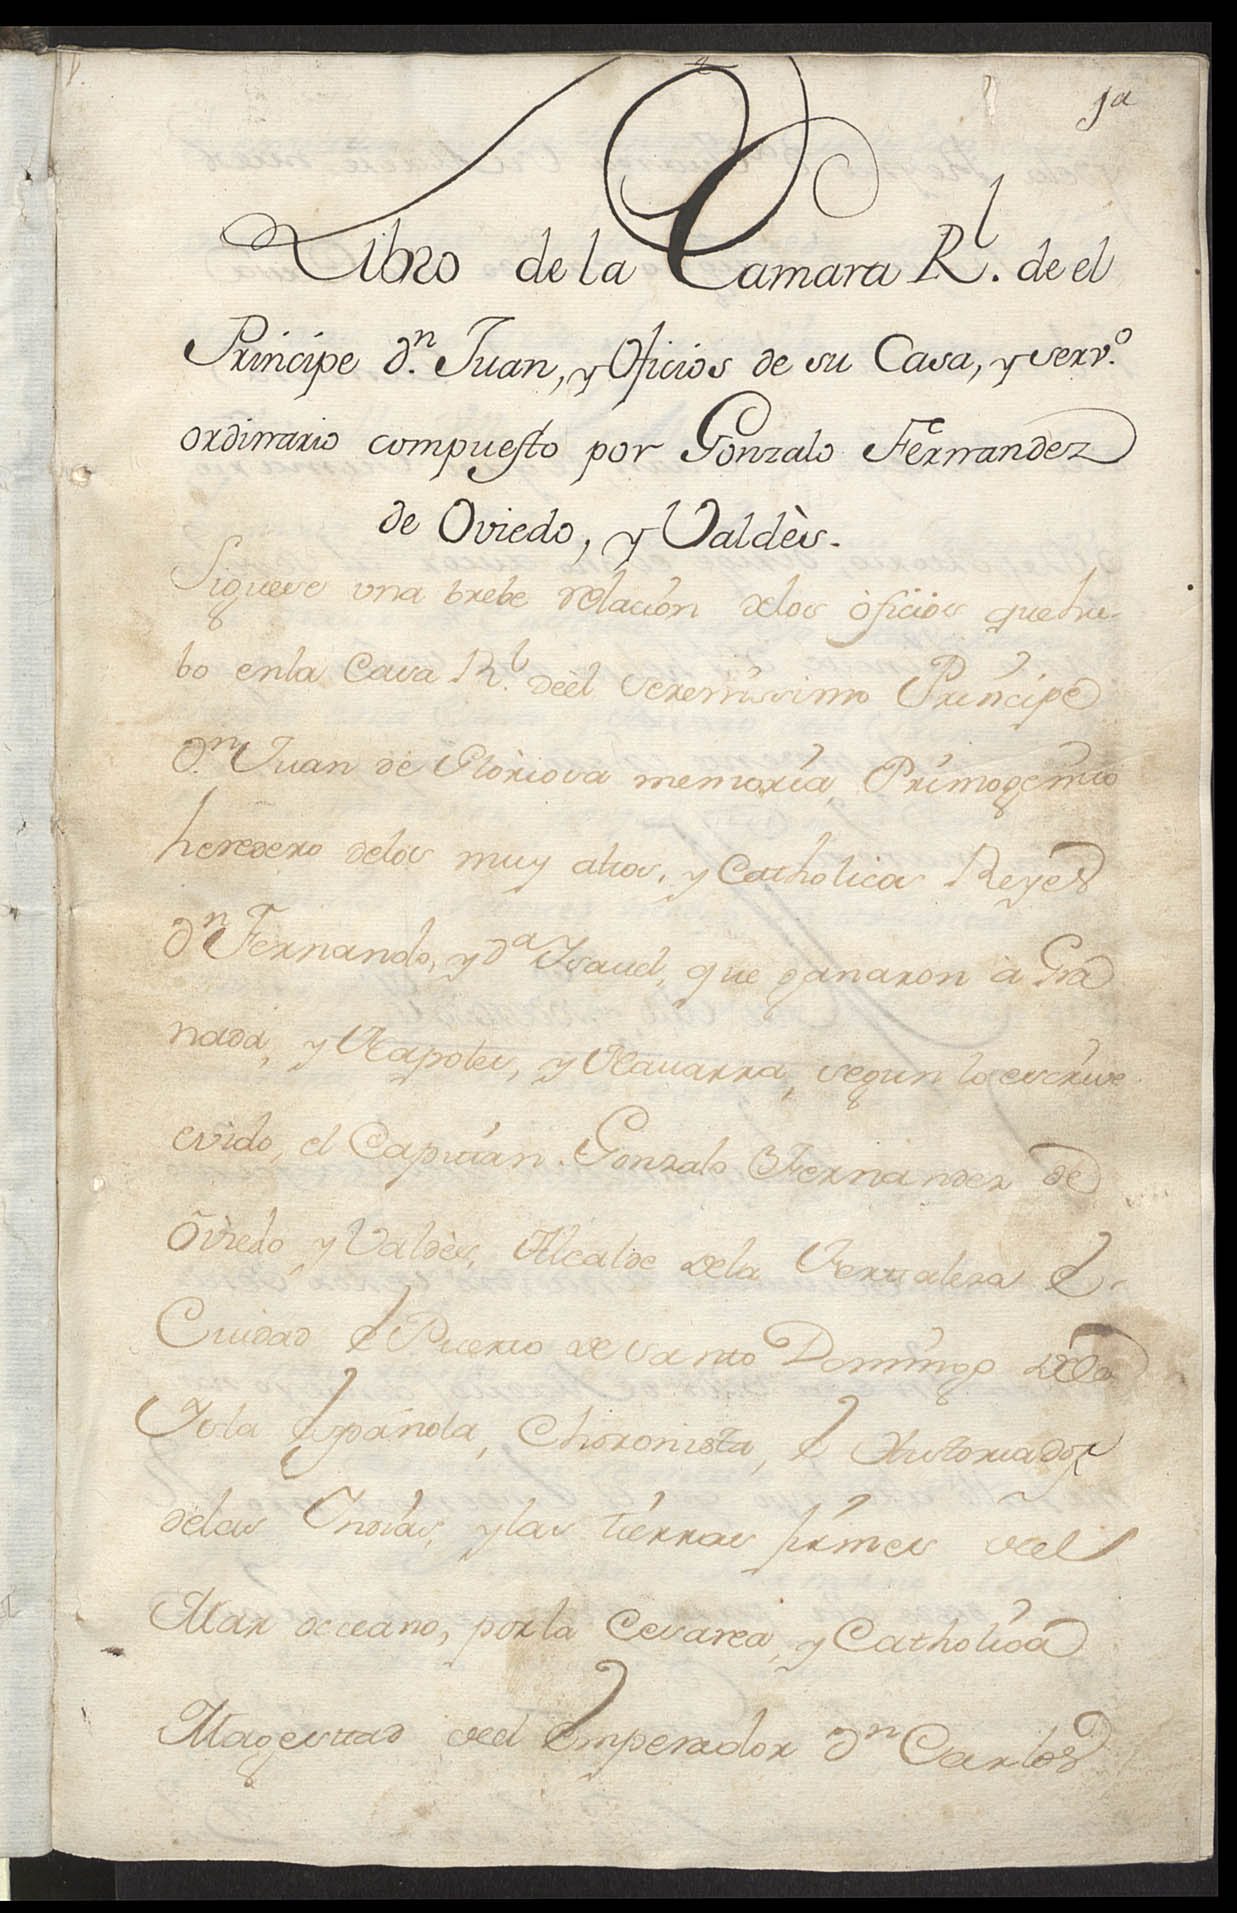 1a
Libro de la Camara Rl. de el
Principe dn. Juan, y Oficios de su Casa, y serv.o
ordinnario compuesto por Gonzalo Fernandez
de Oviedo, y Valdès.
Siguese una brebe relacion delos òficios quehu-
bo enla Casa Rl. deèl serenissimo Principe
dn. Juan de Gloriosa memoria Primogenito
heredero delos muy altos, y Catholicos Reyes
dn Fernando, y da Ysavel, que ganaron à Gra
nada, y Napoles, y Navarra, segun lo escrive
evido, el Capitan Gonzalo Fernandez de
Oviedo, y Valdès, Alcalde dela Fortaleza &
Ciudad & Puerto de santo Domingo dela
Ysla Española, Choronista, & Historiador
delas Yndias, y las tierras firmes del
Mar occeano, por la Cesarea, y Catholica
Magestad del Emperador dn Carlos